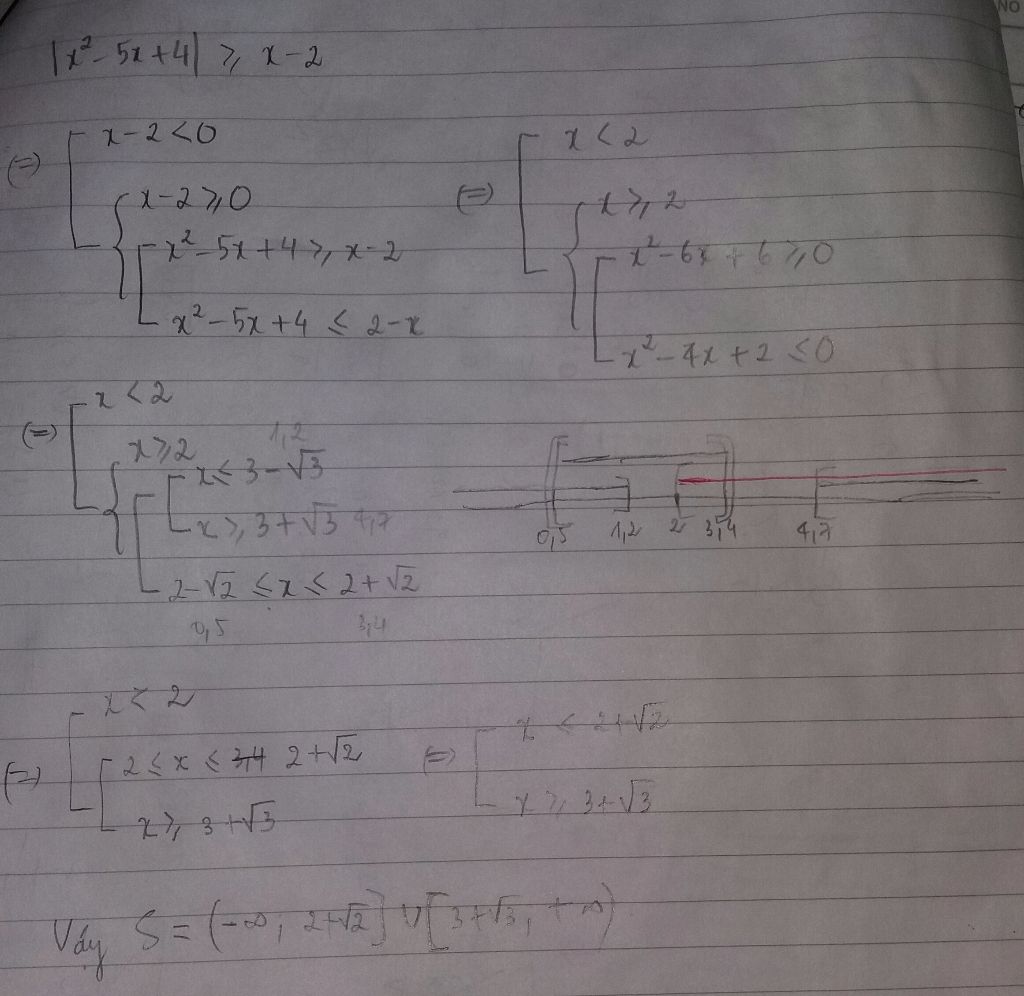 |x² - 5x + 4| ≥ x - 2
(=) [ x - 2 < 0
{ x - 2 ≥ 0
[ x² - 5x + 4 ≥ x - 2
x² - 5x + 4 ≤ 2 - x
(=) [ x < 2
{ x ≥ 2
[ x² - 6x + 6 ≥ 0
x² - 4x + 2 ≤ 0
(=) [ x < 2
{ x ≥ 2 1,2
[ [ x ≤ 3 - √3
x ≥ 3 + √3 4,7
2 - √2 ≤ x ≤ 2 + √2
0,5 3,4
0,5 1,2 2 3,4 4,7
(=) [ x < 2
[ 2 ≤ x ≤ 3,4 2 + √2
x ≥ 3 + √3
(=) [ x ≤ 2 + √2
x ≥ 3 + √3
Vậy S = (-∞; 2+√2] ∪ [3+√3; +∞)